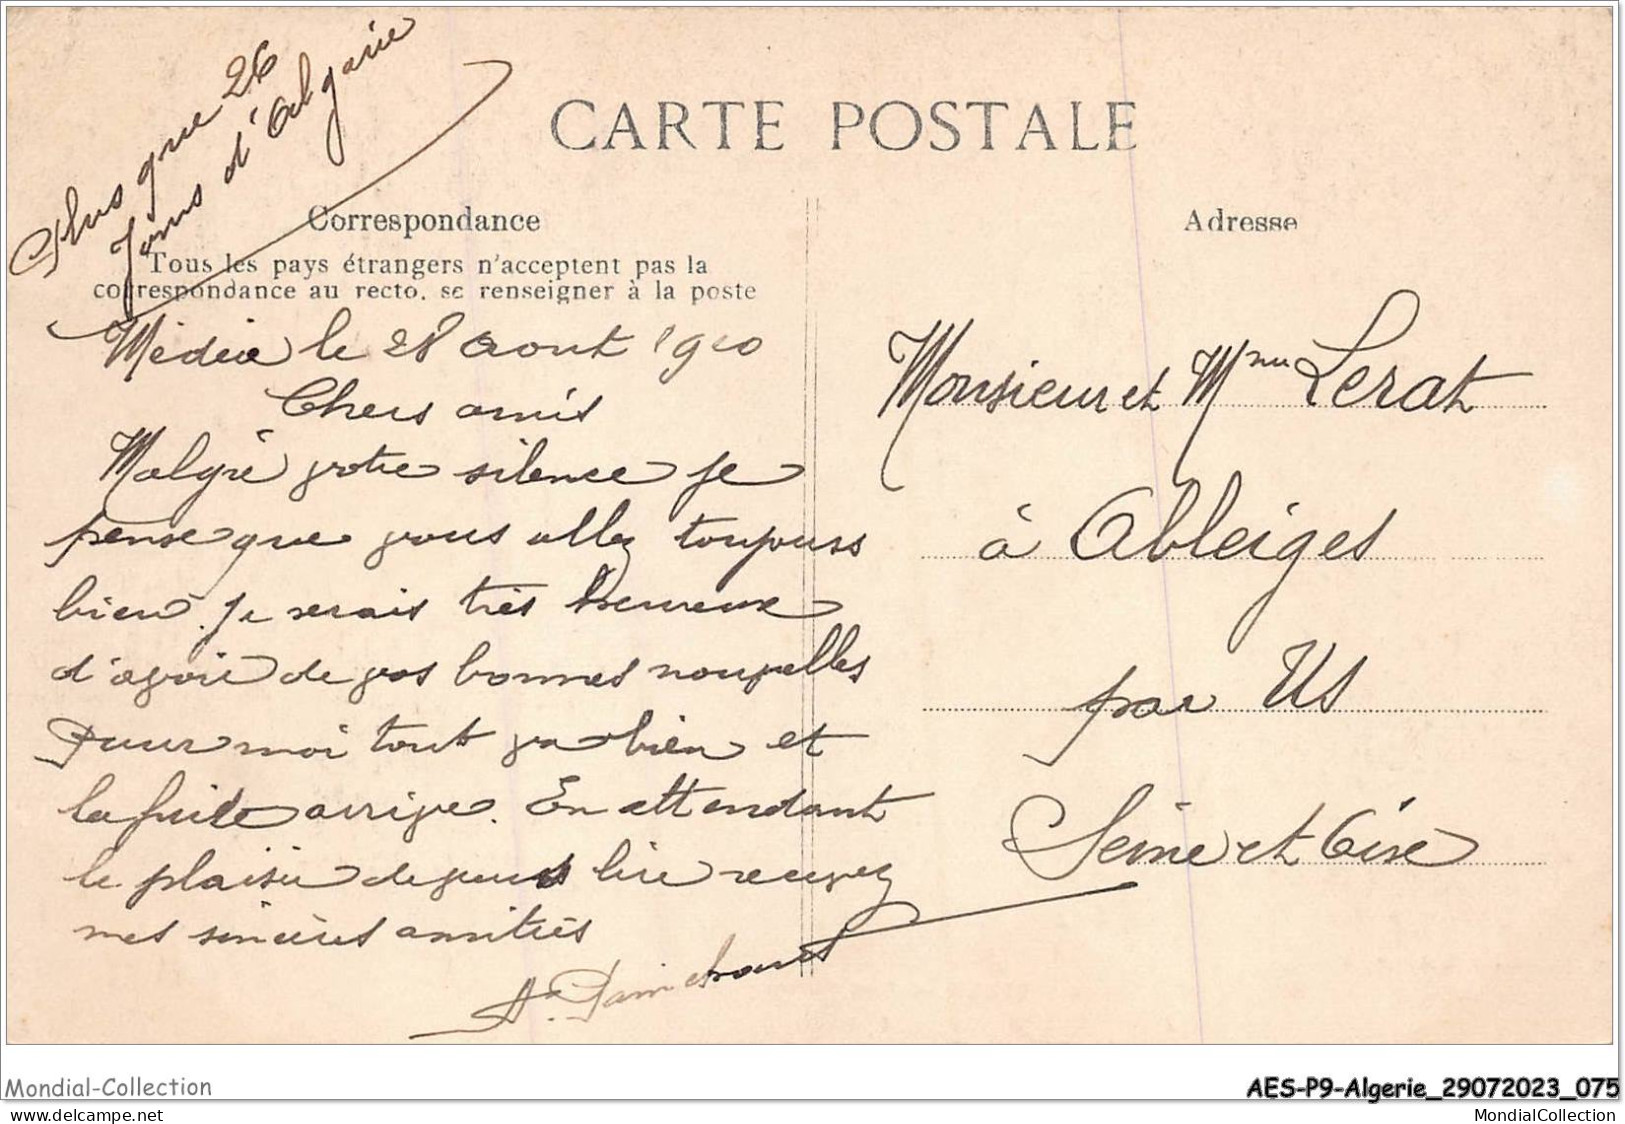 Plus que 26
Jours d'Algérie
CARTE POSTALE
Correspondance
Tous les pays étrangers n'acceptent pas la
correspondance au recto. se renseigner à la poste
Médéa le 28 Aout 1910
Chers amis
Malgré votre silence je
pense que vous allez toujours
bien. Je serais très heureux
d'avoir de vos bonnes nouvelles
Pour moi tout va bien et
la fuite arrive. En attendant
le plaisir de vous lire recevez
mes sincères amitiés
Adresse
Monsieur et Mme Lerat
à Ableiges
par Us
Seine et Oise
Mondial-Collection
AES-P9-Algerie_29072023_075
www.delcampe.net
MondialCollection